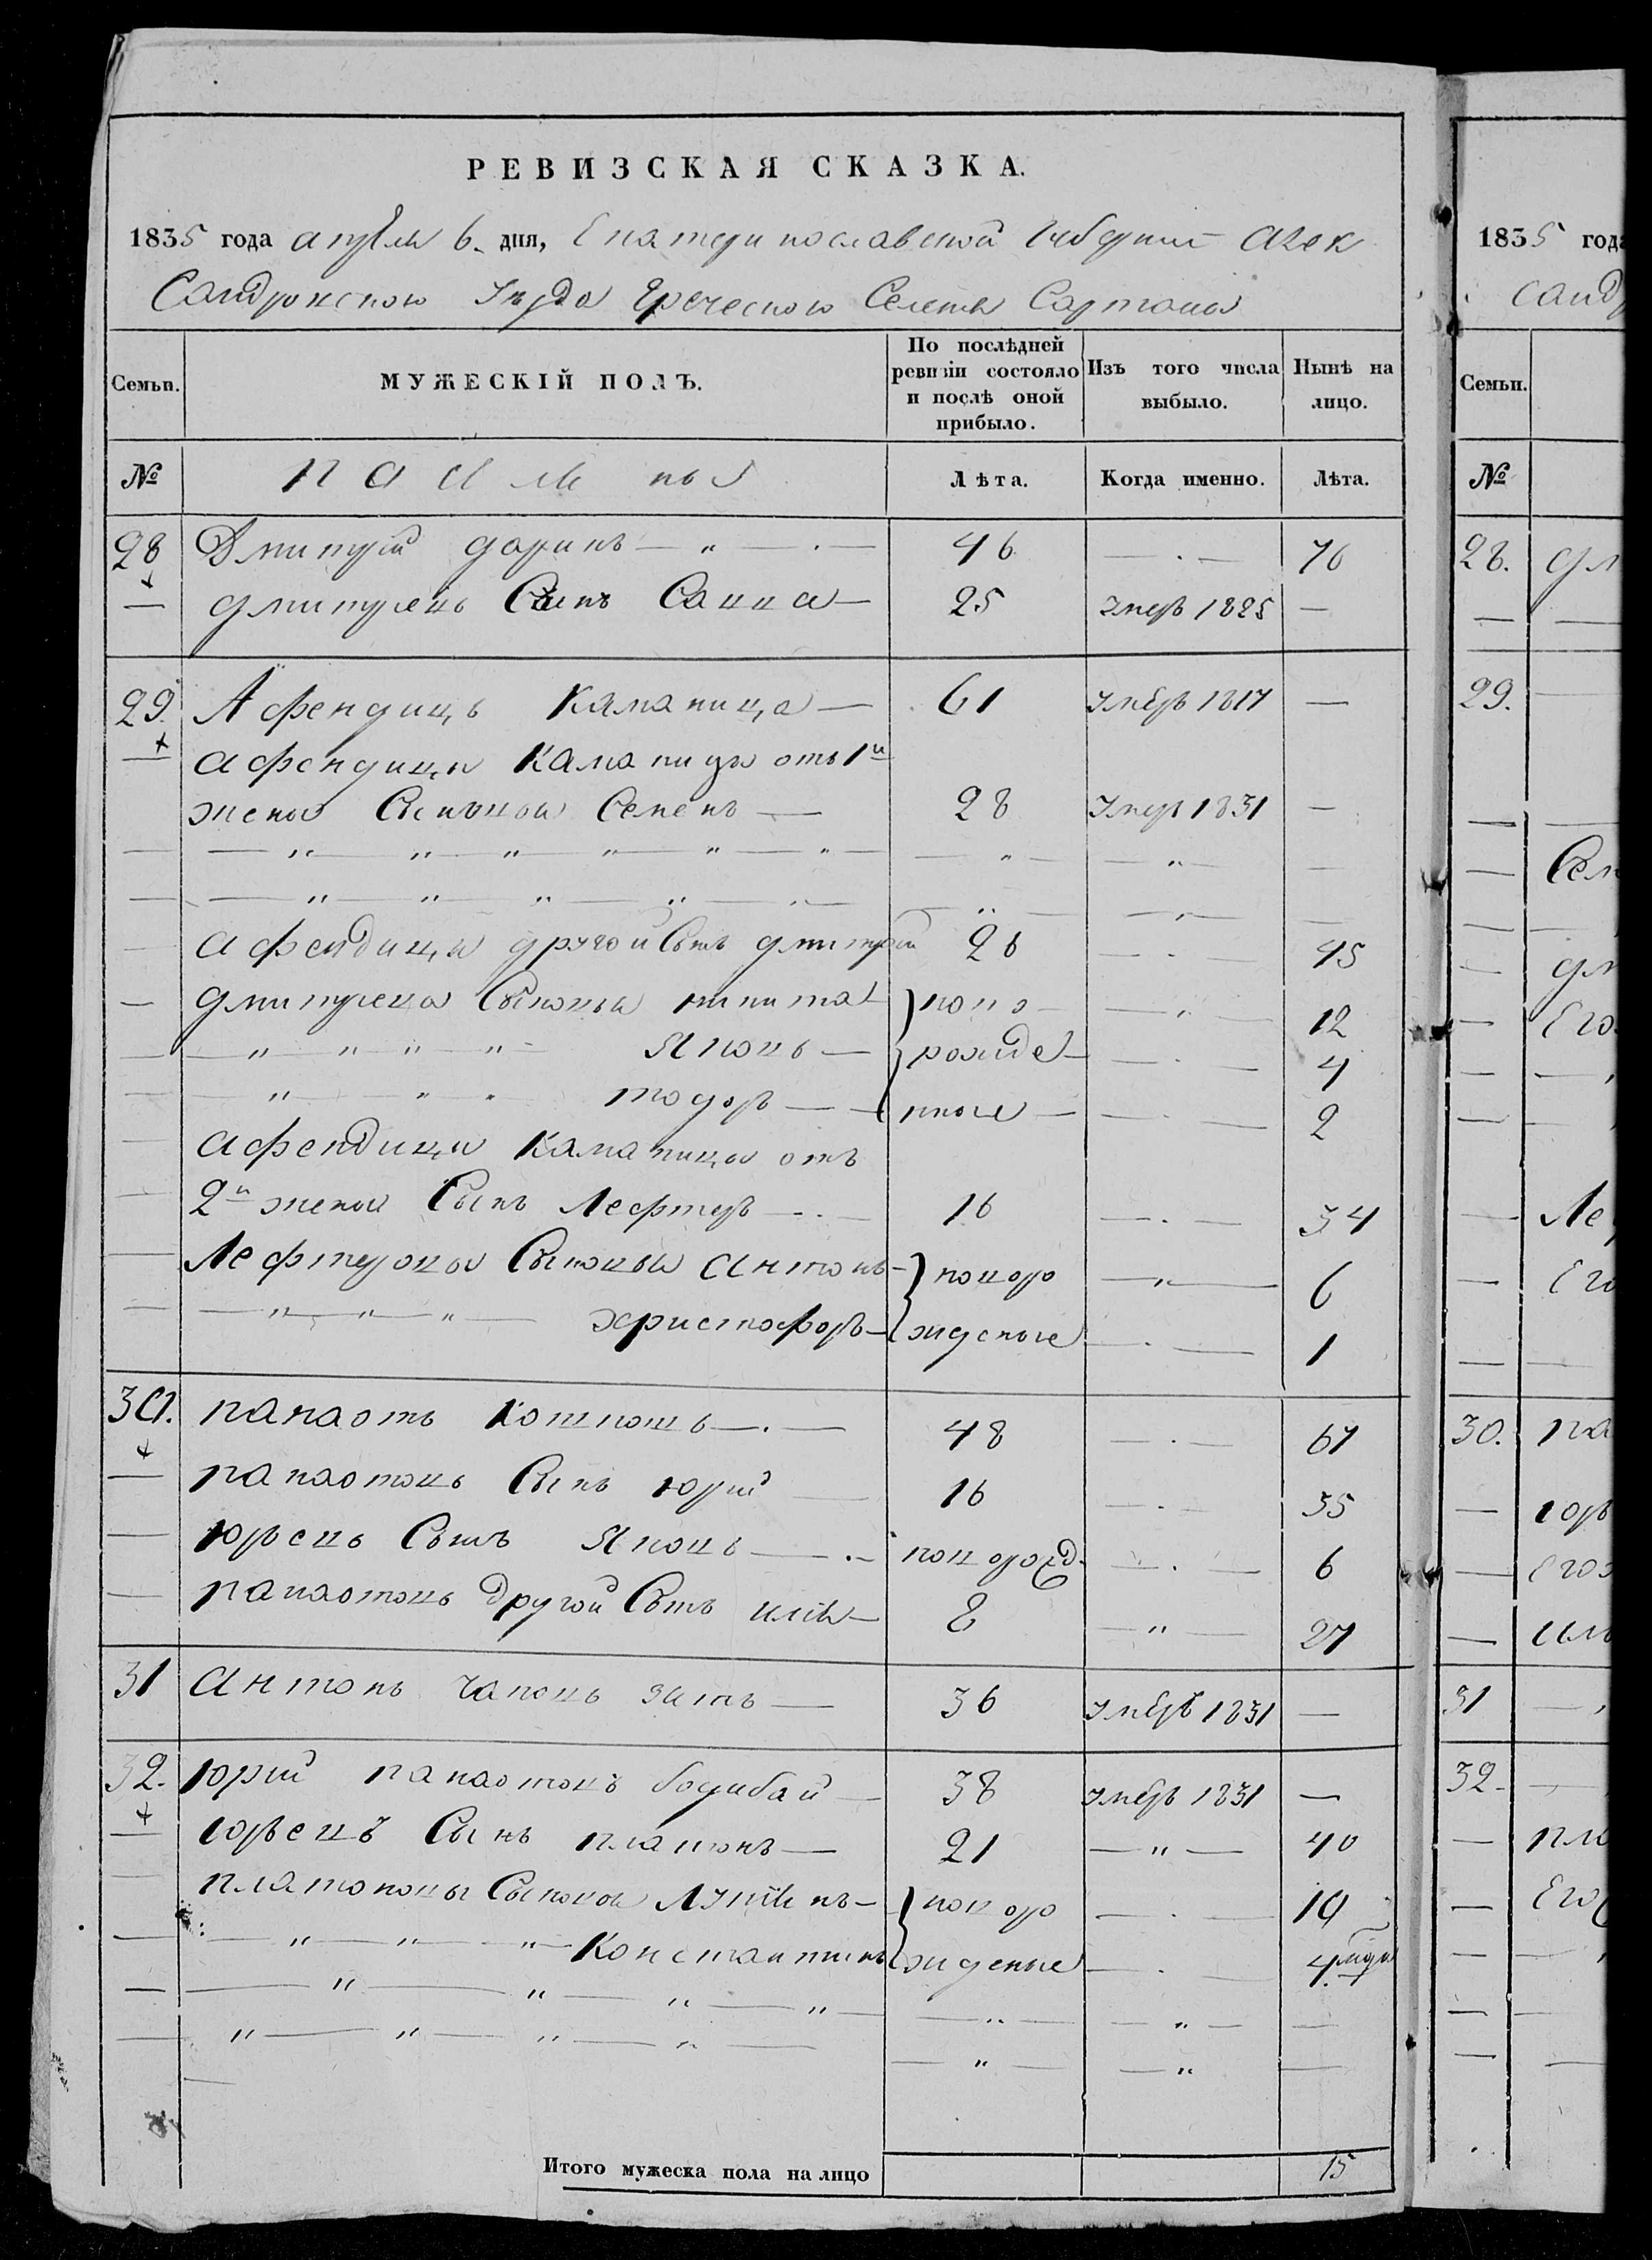 РЕВИЗСКАЯ СКАЗКА.
1835 года апреля 6. дня, Екатеринославской Губернии Алек
Сандровского Уезда Греческого Селения Сартаны
Семьи. МУЖЕСКІЙ ПОЛЪ. По послѣдней ревизіи состояло и послѣ оной прибыло. Изъ того числа выбыло. Нынѣ на лицо.
№ Лѣта. Когда именно. Лѣта.
28 Дмитрій 46 — . — 76
— Дмитріевъ Сынъ Савва — 25 Умеръ 1825 —
29. Афендикъ Каманица — 61 Умеръ 1817 —
— афендика Каманицы отъ 1й
жены Сыновья Семенъ — 28 Умеръ 1831 —
— афендика другой Сынъ дмитрій 26 — . — 45
— дмитриева Сыновья никита ново — " — 12
— " " " " Яковъ — рожде — . — 4
— " " " тодоръ — нные — — . — 2
— афендика Каманицы отъ
— 2й жены Сынъ Лефтеръ — . — 16 — . — 34
— Лефтерова Сыновья Антонъ — новоро — " — 6
— " " " христофоръ — жденые — . — 1
30. панаотъ Кошкошъ — . — 48 — . — 67
— панаотовъ Сынъ юрий — 16 — . — 35
— юрьевъ Сынъ Яковъ — . — новорожд. — . — 6
— панаотовъ другой Сынъ илія — 8 — " — 27
31 Антонъ зять — 36 Умеръ 1831 —
32. Юрий панаотовъ 38 Умеръ 1831 —
— юрьевъ Сынъ платонъ — 21 — " — 40
— платоновы Сыновья новоро — . — 19
— " " " Константинъ жденые — . — 4
Итого мужеска пола на лицо 15
1835 года
санд
Семьи.
№
28. дм
29.
Сем
дм
Его
Ле
Его
30. па
юрь
Его
иль
31
32.
пла
Его